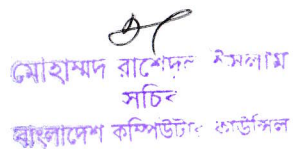 মোহাম্মদ রাশেদুল ইসলাম
সচিব
বাংলাদেশ কম্পিউটার কাউন্সিল